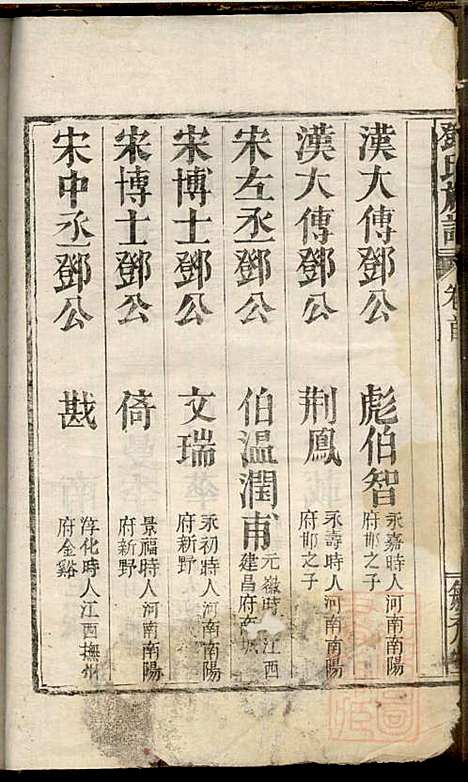 鄧氏族譜 卷首
漢大傅鄧公 彪伯智 永嘉時人河南南陽
府邯之子
漢大傅鄧公 荆鳳 永壽時人河南南陽
府邯之子
宋左丞鄧公 伯溫潤甫 元 時 江西
建昌府南城
宋博士鄧公 文瑞 永初時人河南南陽
府新野
宋博士鄧公 倚 景福時人河南南陽
府新野
宋中丞鄧公 戡 淳化時人江西撫州
府金谿